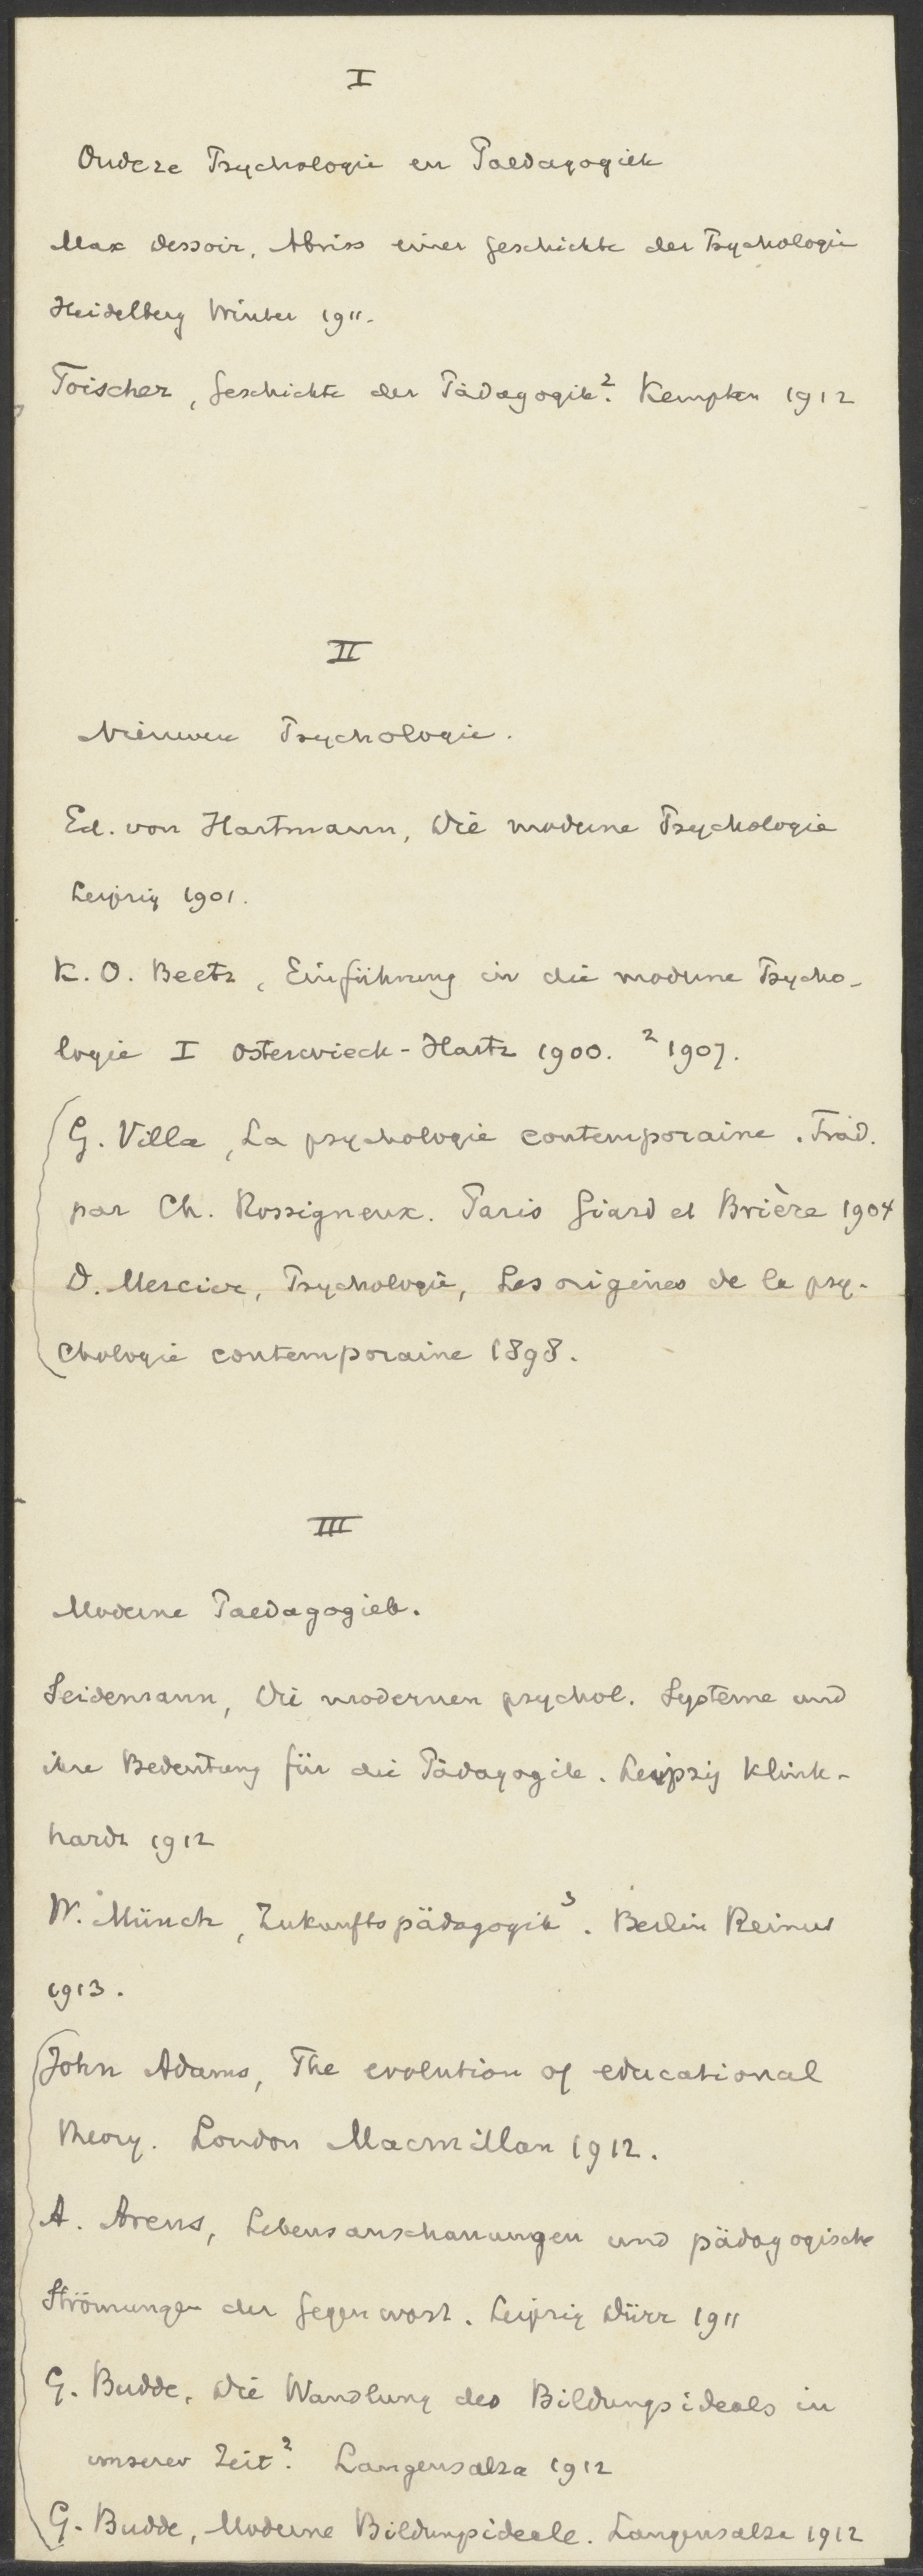 I
Oudere Psychologie en Paedagogiek
Max Dessoir, Abriss einer Geschichte der Psychologie
Heidelberg Winter 1911.
Toischer, Geschichte der Pädagogik². Kempten 1912
II
Nieuwere Psychologie.
Ed. von Hartmann, Die moderne Psychologie
Leipzig 1901.
K. O. Beetz, Einführung in die moderne Psycho-
logie I Osterwieck-Hartz 1900. ²1907.
G. Villa, La psychologie contemporaine. Trad.
par Ch. Rossigneux. Paris Giard et Brière 1904
D. Mercier, Psychologie, Les origines de la psy-
chologie contemporaine 1898.
III
Moderne Paedagogiek.
Seidemann, Die modernen psychol. Systeme und
ihre Bedeutung für die Pädagogik. Leipzig Klink-
hardt 1912
W. Münch, Zukunftspädagogik³. Berlin Reimer
1913.
John Adams, The evolution of educational
theory. London Macmillan 1912.
A. Arens, Lebensanschauungen und pädagogische
Strömungen der Gegenwart. Leipzig Dürr 1911
G. Budde, Die Wandlung des Bildungsideals in
unserer Zeit². Langensalza 1912
G. Budde, Moderne Bildungsideale. Langensalza 1912